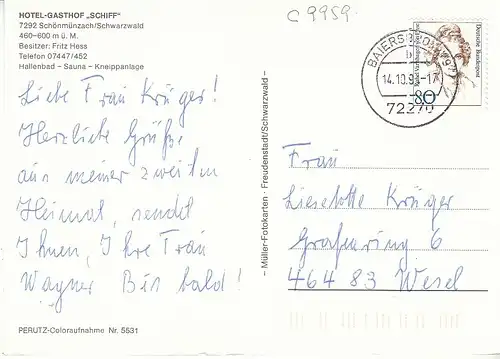 HOTEL-GASTHOF „SCHIFF"
7292 Schönmünzach/Schwarzwald
460–600 m ü. M.
Besitzer: Fritz Hess
Telefon 07447/452
Hallenbad – Sauna – Kneippanlage
Liebe Frau Krüger!
Herzliche Grüße
aus meiner zweiten
Heimat, sendet
Ihnen, Ihre Frau
Wagner Bis bald!
PERUTZ-Coloraufnahme Nr. 5531
– Müller-Fotokarten · Freudenstadt/Schwarzwald –
C 9959
BAIERSBRONN
b
14.10.9
-17
72270
80
Deutsche Bundespost
Frau
Lieselotte Krüger
Grafenring 6
46483 Wesel